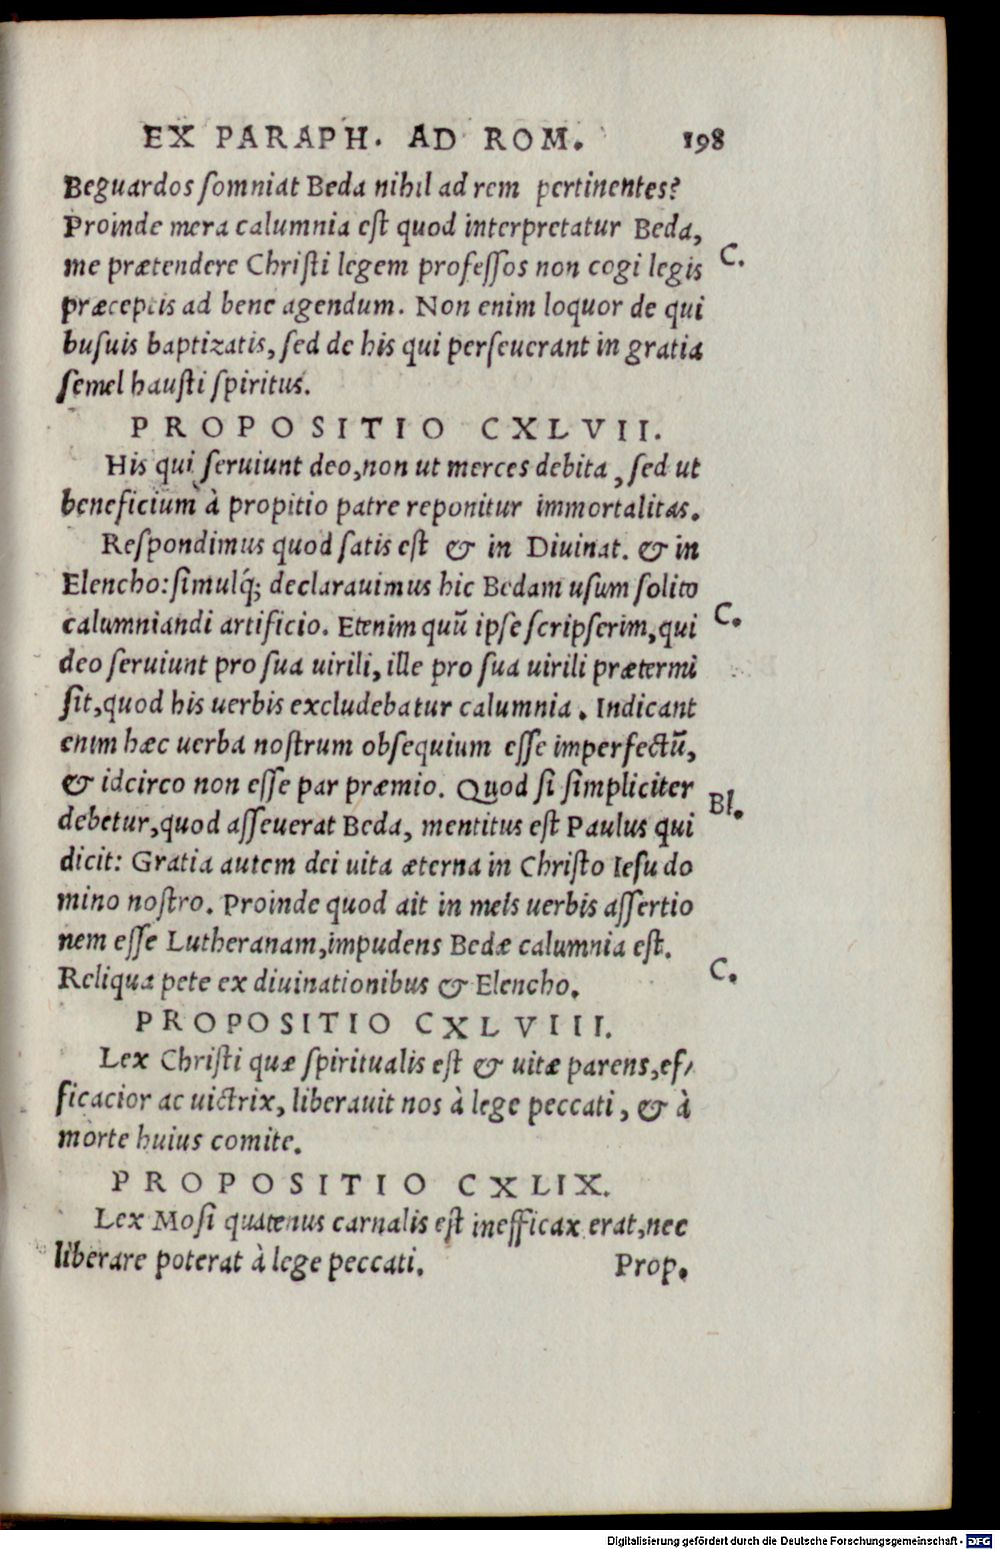 EX PARAPH. AD ROM. 198
Beguardos somniat Beda nihil ad rem pertinentes?
Proinde mera calumnia est quod interpretatur Beda,
me prætendere Christi legem professos non cogi legis C.
præceptis ad bene agendum. Non enim loquor de qui
busuis baptizatis, sed de his qui perseuerant in gratia
semel hausti spiritus.
PROPOSITIO CXLVII.
His qui seruiunt deo, non ut merces debita, sed ut
beneficium à propitio patre reponitur immortalitas.
Respondimus quod satis est & in Diuinat. & in
Elencho: simulq́; declarauimus hic Bedam usum solito
calumniandi artificio. Etenim quū ipse scripserim, qui C.
deo seruiunt pro sua uirili, ille pro sua uirili prætermi
sit, quod his uerbis excludebatur calumnia. Indicant
enim hæc uerba nostrum obsequium esse imperfectū,
& idcirco non esse par præmio. Quod si simpliciter Bl.
debetur, quod asseuerat Beda, mentitus est Paulus qui
dicit: Gratia autem dei uita æterna in Christo Iesu do
mino nostro. Proinde quod ait in meis uerbis assertio
nem esse Lutheranam, impudens Bedæ calumnia est.
Reliqua pete ex diuinationibus & Elencho. C.
PROPOSITIO CXLVIII.
Lex Christi quæ spiritualis est & uitæ parens, ef-
ficacior ac uictrix, liberauit nos à lege peccati, & à
morte huius comite.
PROPOSITIO CXLIX.
Lex Mosi quatenus carnalis est inefficax erat, nec
liberare poterat à lege peccati. Prop.
Digitalisierung gefördert durch die Deutsche Forschungsgemeinschaft - DFG